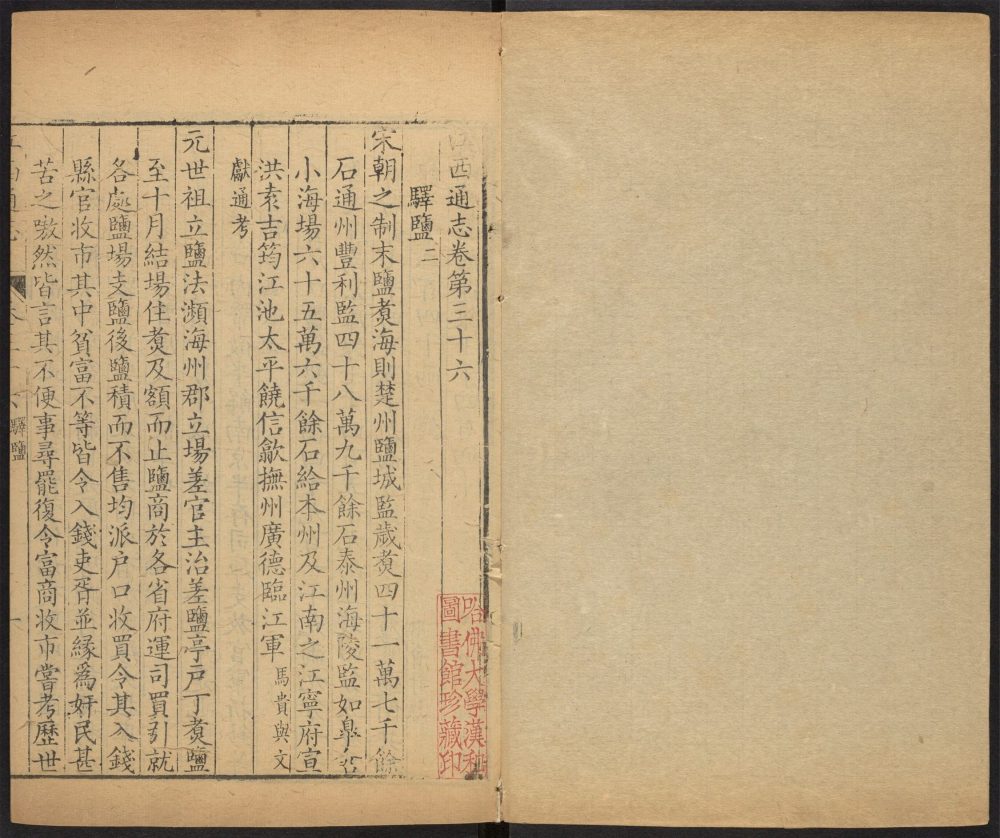 江西通志卷第三十六
驛鹽二
宋朝之制末鹽煑海則楚州鹽城監歲煑四十一萬七千餘
石通州豐利監四十八萬九千餘石泰州海陵監如臯倉
小海場六十五萬六千餘石給本州及江南之江寧府宣
洪袁吉筠江池太平饒信歙撫州廣德臨江軍馬貴與文
獻通考
元世祖立鹽法瀕海州郡立場差官主治差鹽亭戸丁煑鹽
至十月結場住煑及額而止鹽商於各省府運司買引就
各處鹽場支鹽後鹽積而不售均派戸口收買令其入錢
縣官收市其中貧富不等皆令入錢吏胥並緣爲奸民甚
苦之嗷然皆言其不便事尋罷復令富商收市嘗考歷世
驛鹽
一
哈佛大學漢和
圖書館珍藏印